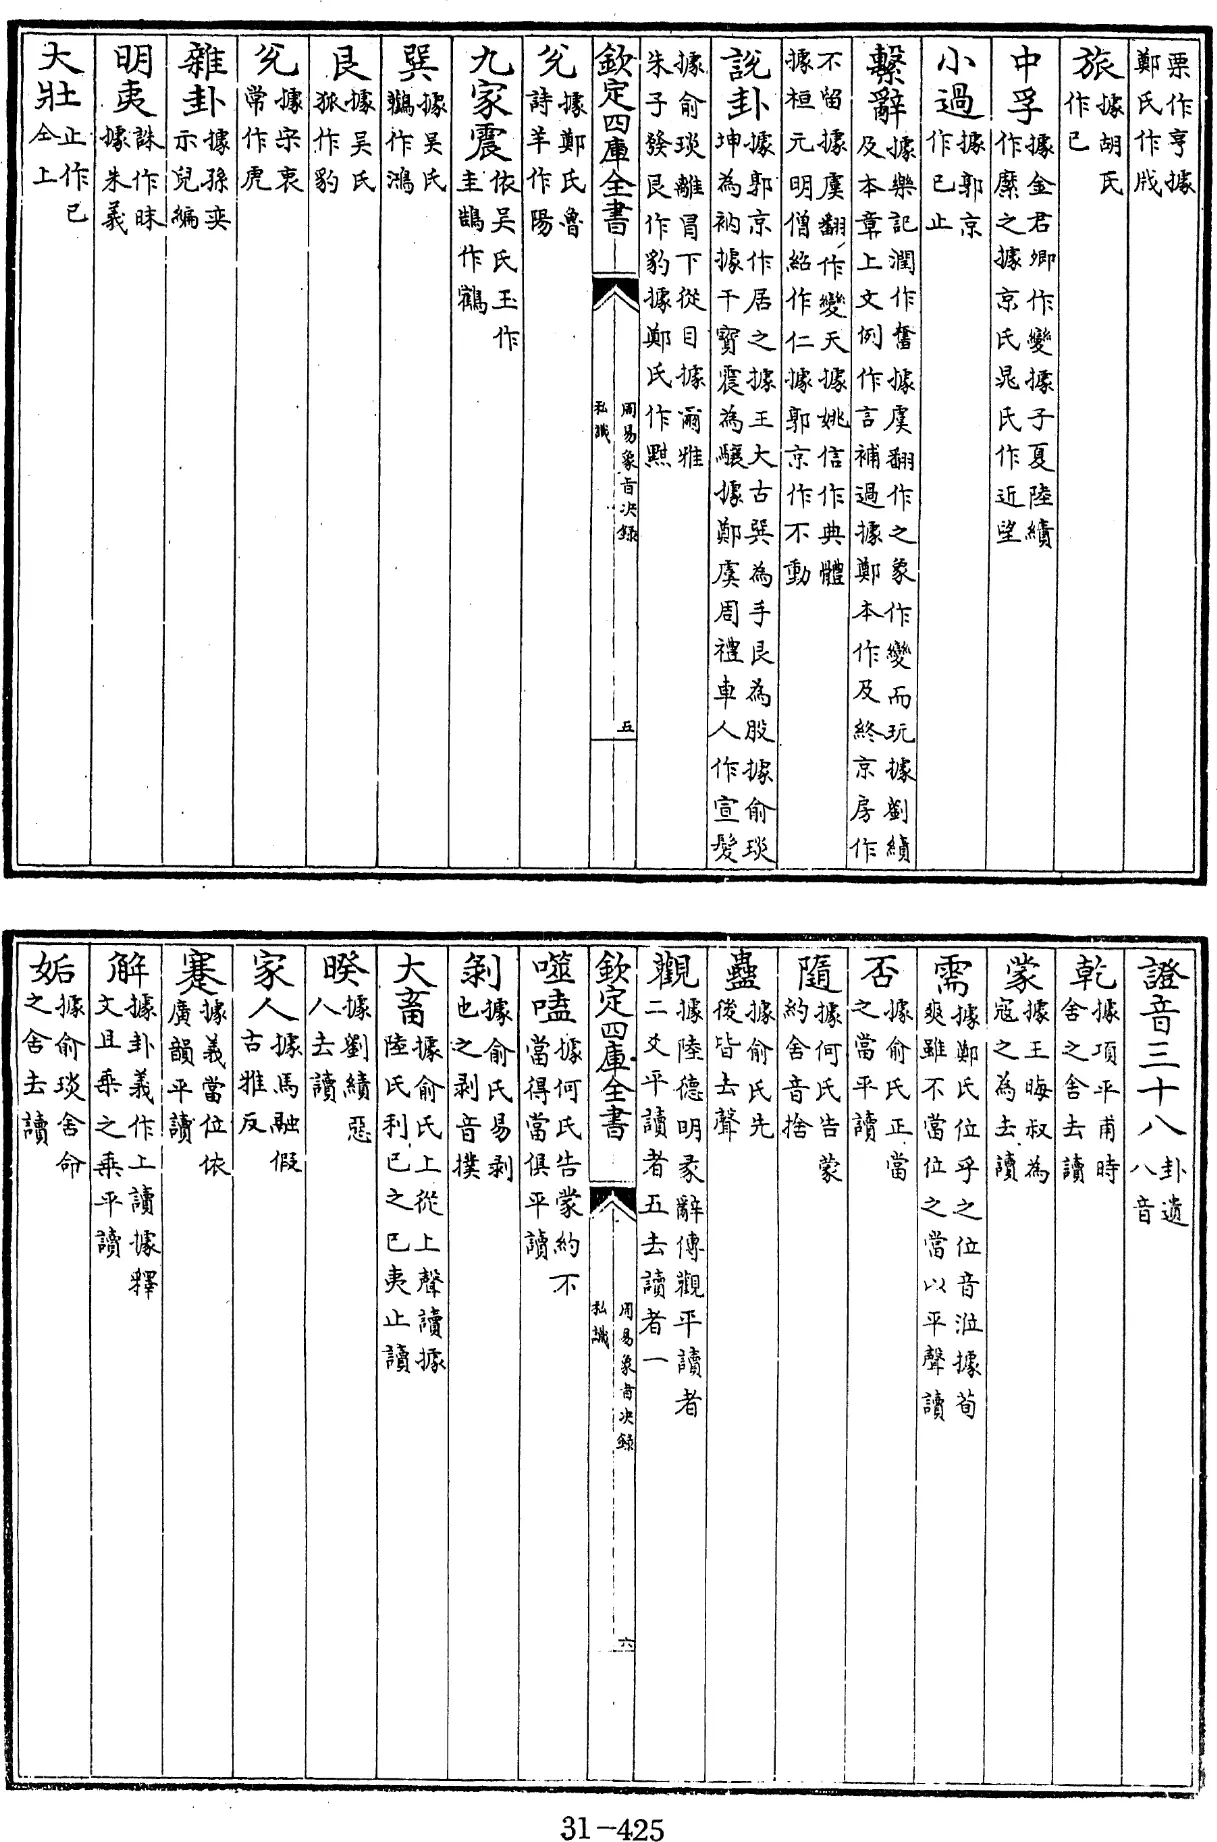 栗作亨據
鄭氏作戕
旅據胡氏
作已
中孚據金君卿作變據子夏陸績
作縻之據京氏晁氏作近望
小過據郭京
作已止
繫辭據樂記潤作奮據虞翻作之象作變而玩據劉績
及本章上文例作言補過據鄭本作及終京房作
不留據虞翻作變天據姚信作典體
據桓元明僧紹作仁據郭京作不動
說卦據郭京作居之據王大古巽為手艮為股據俞琰
坤為衲據干寳震為驤據鄭虞周禮車人作宣髮
據俞琰離冒下從目據爾雅
朱子發艮作豹據鄭氏作黙
欽定四庫全書
周易象旨決錄
私識
五
兊據鄭氏魯
詩羊作陽
九家震依吴氏玉作
圭鵠作鸛
巽據吴氏
鸛作鴻
艮據吴氏
狐作豹
兊據宋衷
常作虎
雜卦據孫奕
示兒編
明夷誅作昧
據朱義
大壯止作已
仝上
證音三十八卦遺
八音
乾據項平甫時
舍之舍去讀
蒙據王晦叔為
寇之為去讀
需據鄭氏位乎之位音涖據荀
爽雖不當位之當以平聲讀
否據俞氏正當
之當平讀
隨據何氏告蒙
約舍音捨
蠱據俞氏先
後皆去聲
觀據陸德明彖辭傳觀平讀者
二爻平讀者五去讀者一
欽定四庫全書
周易象旨決錄
私識
六
噬嗑據何氏告蒙約不
當得當俱平讀
剝據俞氏易剥
也之剥音撲
大畜據俞氏上從上聲讀據
陸氏利已之已夷止讀
睽據劉績惡
人去讀
家人據馬融假
古雅反
蹇據義當位依
廣韻平讀
解據卦義作上讀據釋
文且乗之乗平讀
姤據俞琰舍命
之舍去讀
31-425